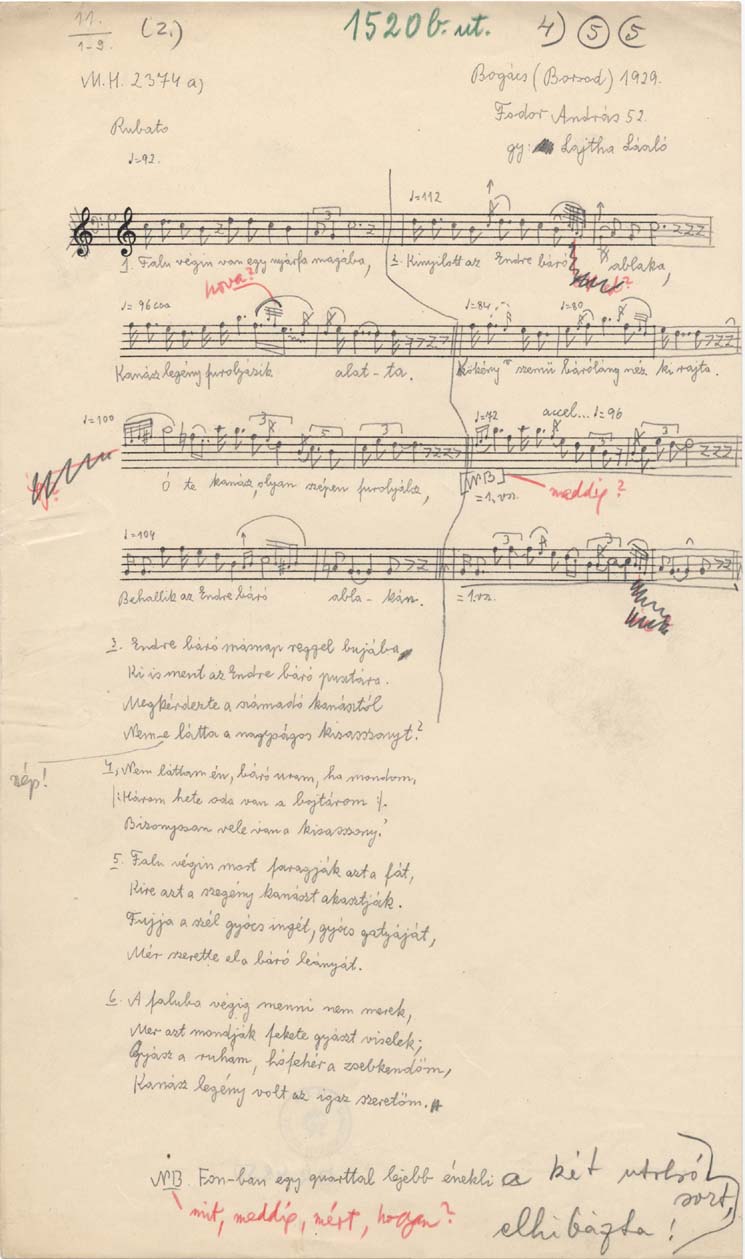 11.
1-9.
(2.)
1520 b. ut.
4) 5 5
M.H. 2374 a)
Bogács (Borsod) 1929.
Fodor András 52.
gy: Lajtha László
Rubato
♩=92.
♩=112
1. Falu végin van egy nyárfa magába,
2. Kinyilott az Endre báró ablaka,
hova?
♩= 96 cca
♩=84
♩=80
Kanász legény furolyázik alat-ta.
Kökény szemü báróláng néz ki rajta.
♩=100
♩=72 accel... ♩=96
Ó te kanász, olyan szépen furolyálsz,
[NB]
=1. vsz.
meddig?
♩=104
Behallik az Endre báró abla-kán.
=1. vsz.
3. Endre báró másnap reggel bujába
Ki is ment az Endre báró pusztára.
Megkérdezte a számadó kanásztól
Nem-e látta a nagyságos kisasszonyt?
szép!
4, Nem láttam én, báró uram, ha mondom,
|: Három hete oda van a bojtárom :|.
Bizonyossan vele van a kisasszony.
5. Falu végin most faragják azt a fát,
Kire azt a szegény kanászt akasztják.
Fujja a szél gyócs ingét, gyócs gatyáját,
Mér szerette el a báró leányát.
6. A faluba végig menni nem merek,
Mer azt mondják fekete gyászt viselek;
Gyász a ruhám, hófehér a zsebkendőm,
Kanász legény volt az igaz szeretőm.
NB. Fon-ban egy quarttal lejebb énekli a két utolsó
sort,
elhibázta!
mit, meddig, mért, hogyan?